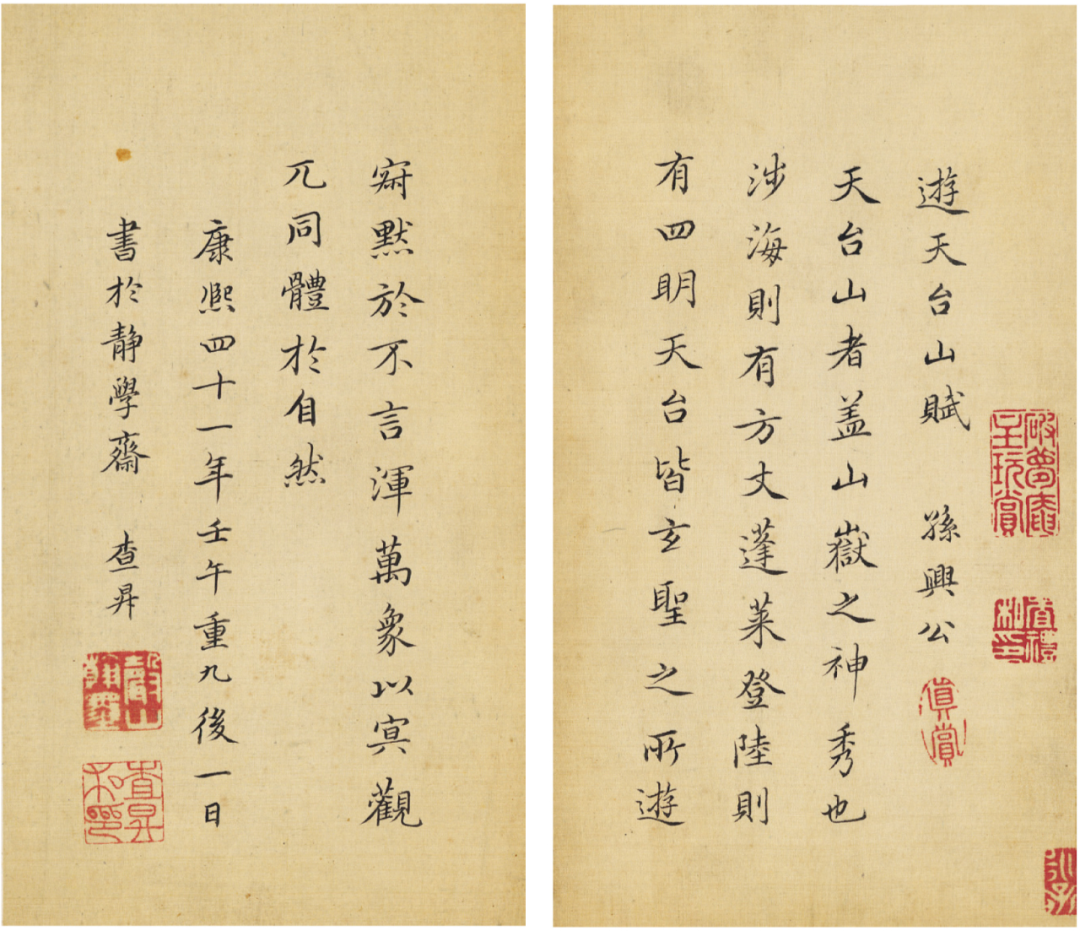 遊天台山賦 孫興公
真賞
天台山者盖山嶽之神秀也
涉海則有方丈蓬萊登陸則
有四明天台皆玄聖之所遊
寂默於不言渾萬象以冥觀
兀同體於自然
康熙四十一年壬午重九後一日
書於静學齋 查昇
查昇私印